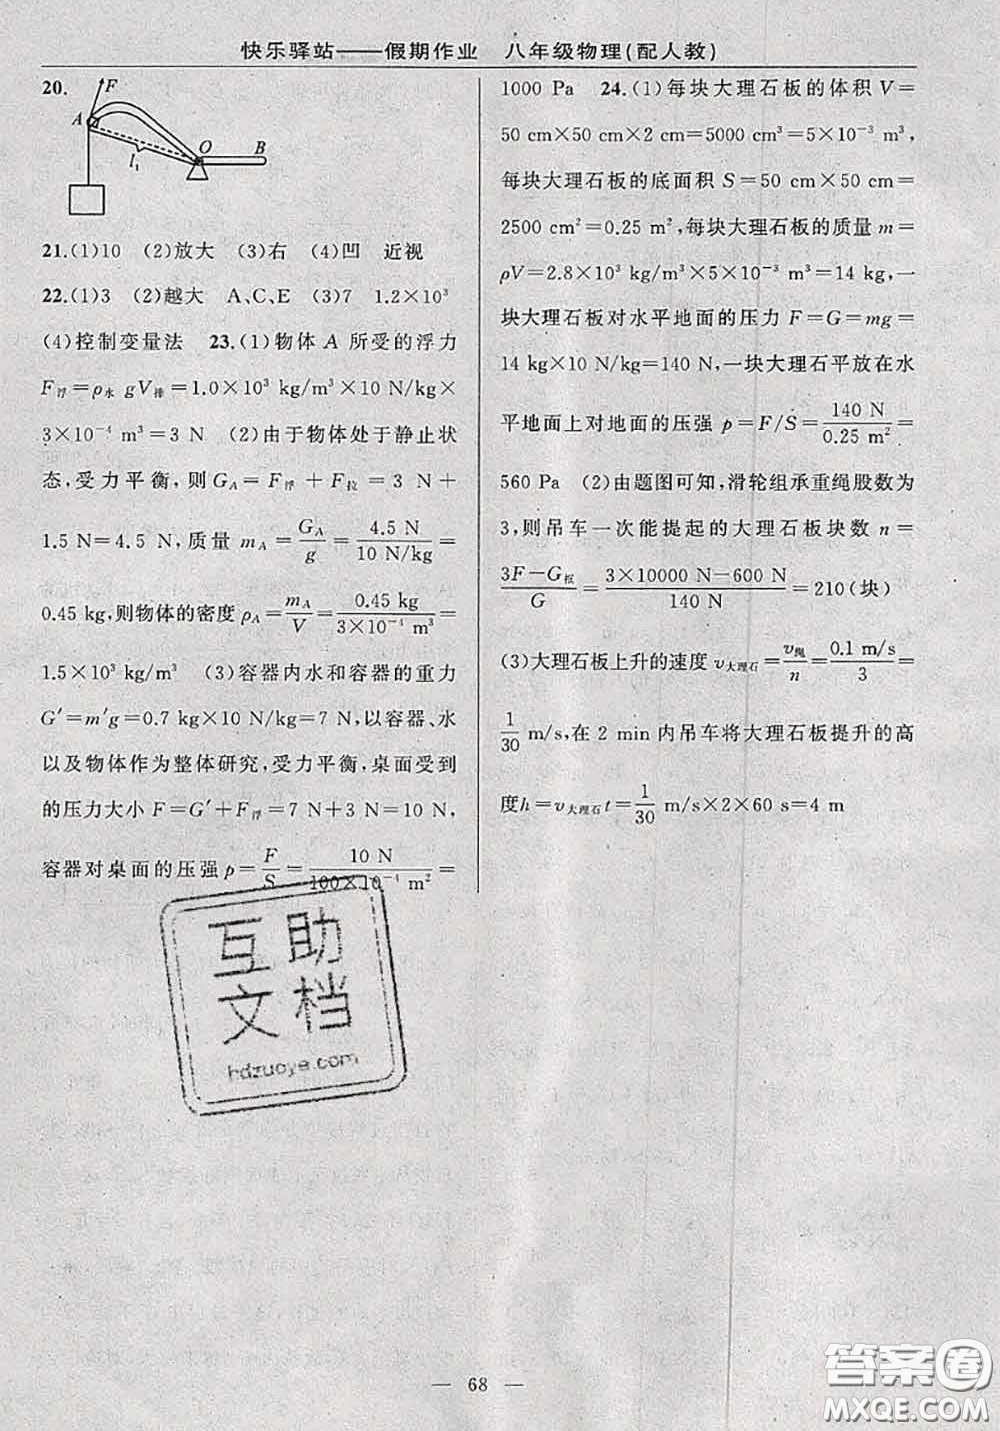 快乐驿站——假期作业　八年级物理(配人教)
20.
F
A
O
B
l₁
21.(1)10　(2)放大　(3)右　(4)凹　近视
22.(1)3　(2)越大　A、C、E　(3)7　1.2×10³
(4)控制变量法　23.(1)物体 A 所受的浮力
F浮=ρ水 gV排=1.0×10³ kg/m³×10 N/kg×
3×10⁻⁴ m³=3 N　(2)由于物体处于静止状
态,受力平衡,则 G_A=F浮+F拉=3 N+
1.5 N=4.5 N,质量 m_A=G_A/g=4.5 N/10 N/kg=
0.45 kg,则物体的密度 ρ_A=m_A/V=0.45 kg/3×10⁻⁴ m³=
1.5×10³ kg/m³　(3)容器内水和容器的重力
G′=m′g=0.7 kg×10 N/kg=7 N,以容器、水
以及物体作为整体研究,受力平衡,桌面受到
的压力大小 F=G′+F浮=7 N+3 N=10 N,
容器对桌面的压强 p=F/S=10 N/100×10⁻⁴ m²=
1000 Pa　24.(1)每块大理石板的体积 V=
50 cm×50 cm×2 cm=5000 cm³=5×10⁻³ m³,
每块大理石板的底面积 S=50 cm×50 cm=
2500 cm²=0.25 m²,每块大理石板的质量 m=
ρV=2.8×10³ kg/m³×5×10⁻³ m³=14 kg,一
块大理石板对水平地面的压力 F=G=mg=
14 kg×10 N/kg=140 N,一块大理石平放在水
平地面上对地面的压强 p=F/S=140 N/0.25 m²=
560 Pa　(2)由题图可知,滑轮组承重绳股数为
3,则吊车一次能提起的大理石板块数 n=
3F−G框/G=3×10000 N−600 N/140 N=210(块)
(3)大理石板上升的速度 v大理石=v绳/n=0.1 m/s/3=
1/30 m/s,在 2 min 内吊车将大理石板提升的高
度h=v大理石t=1/30 m/s×2×60 s=4 m
互助
文档
hdzuoye.com
— 68 —
答案圈
MXQE.COM